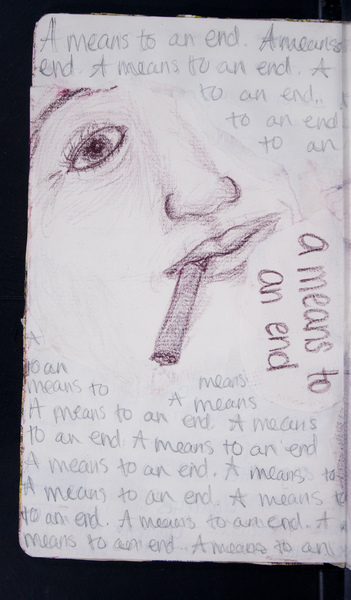 A means to an end. A means
end. A means to an end. A
to an end.
to an end
to an
a means to
an end
A
to an
means to
means
A means
A means to an end. A means
to an end. A means to an end
A means to an end. A means to
A means to an end. A means t
to an end. A means to an end. A
means to an end. A means to an